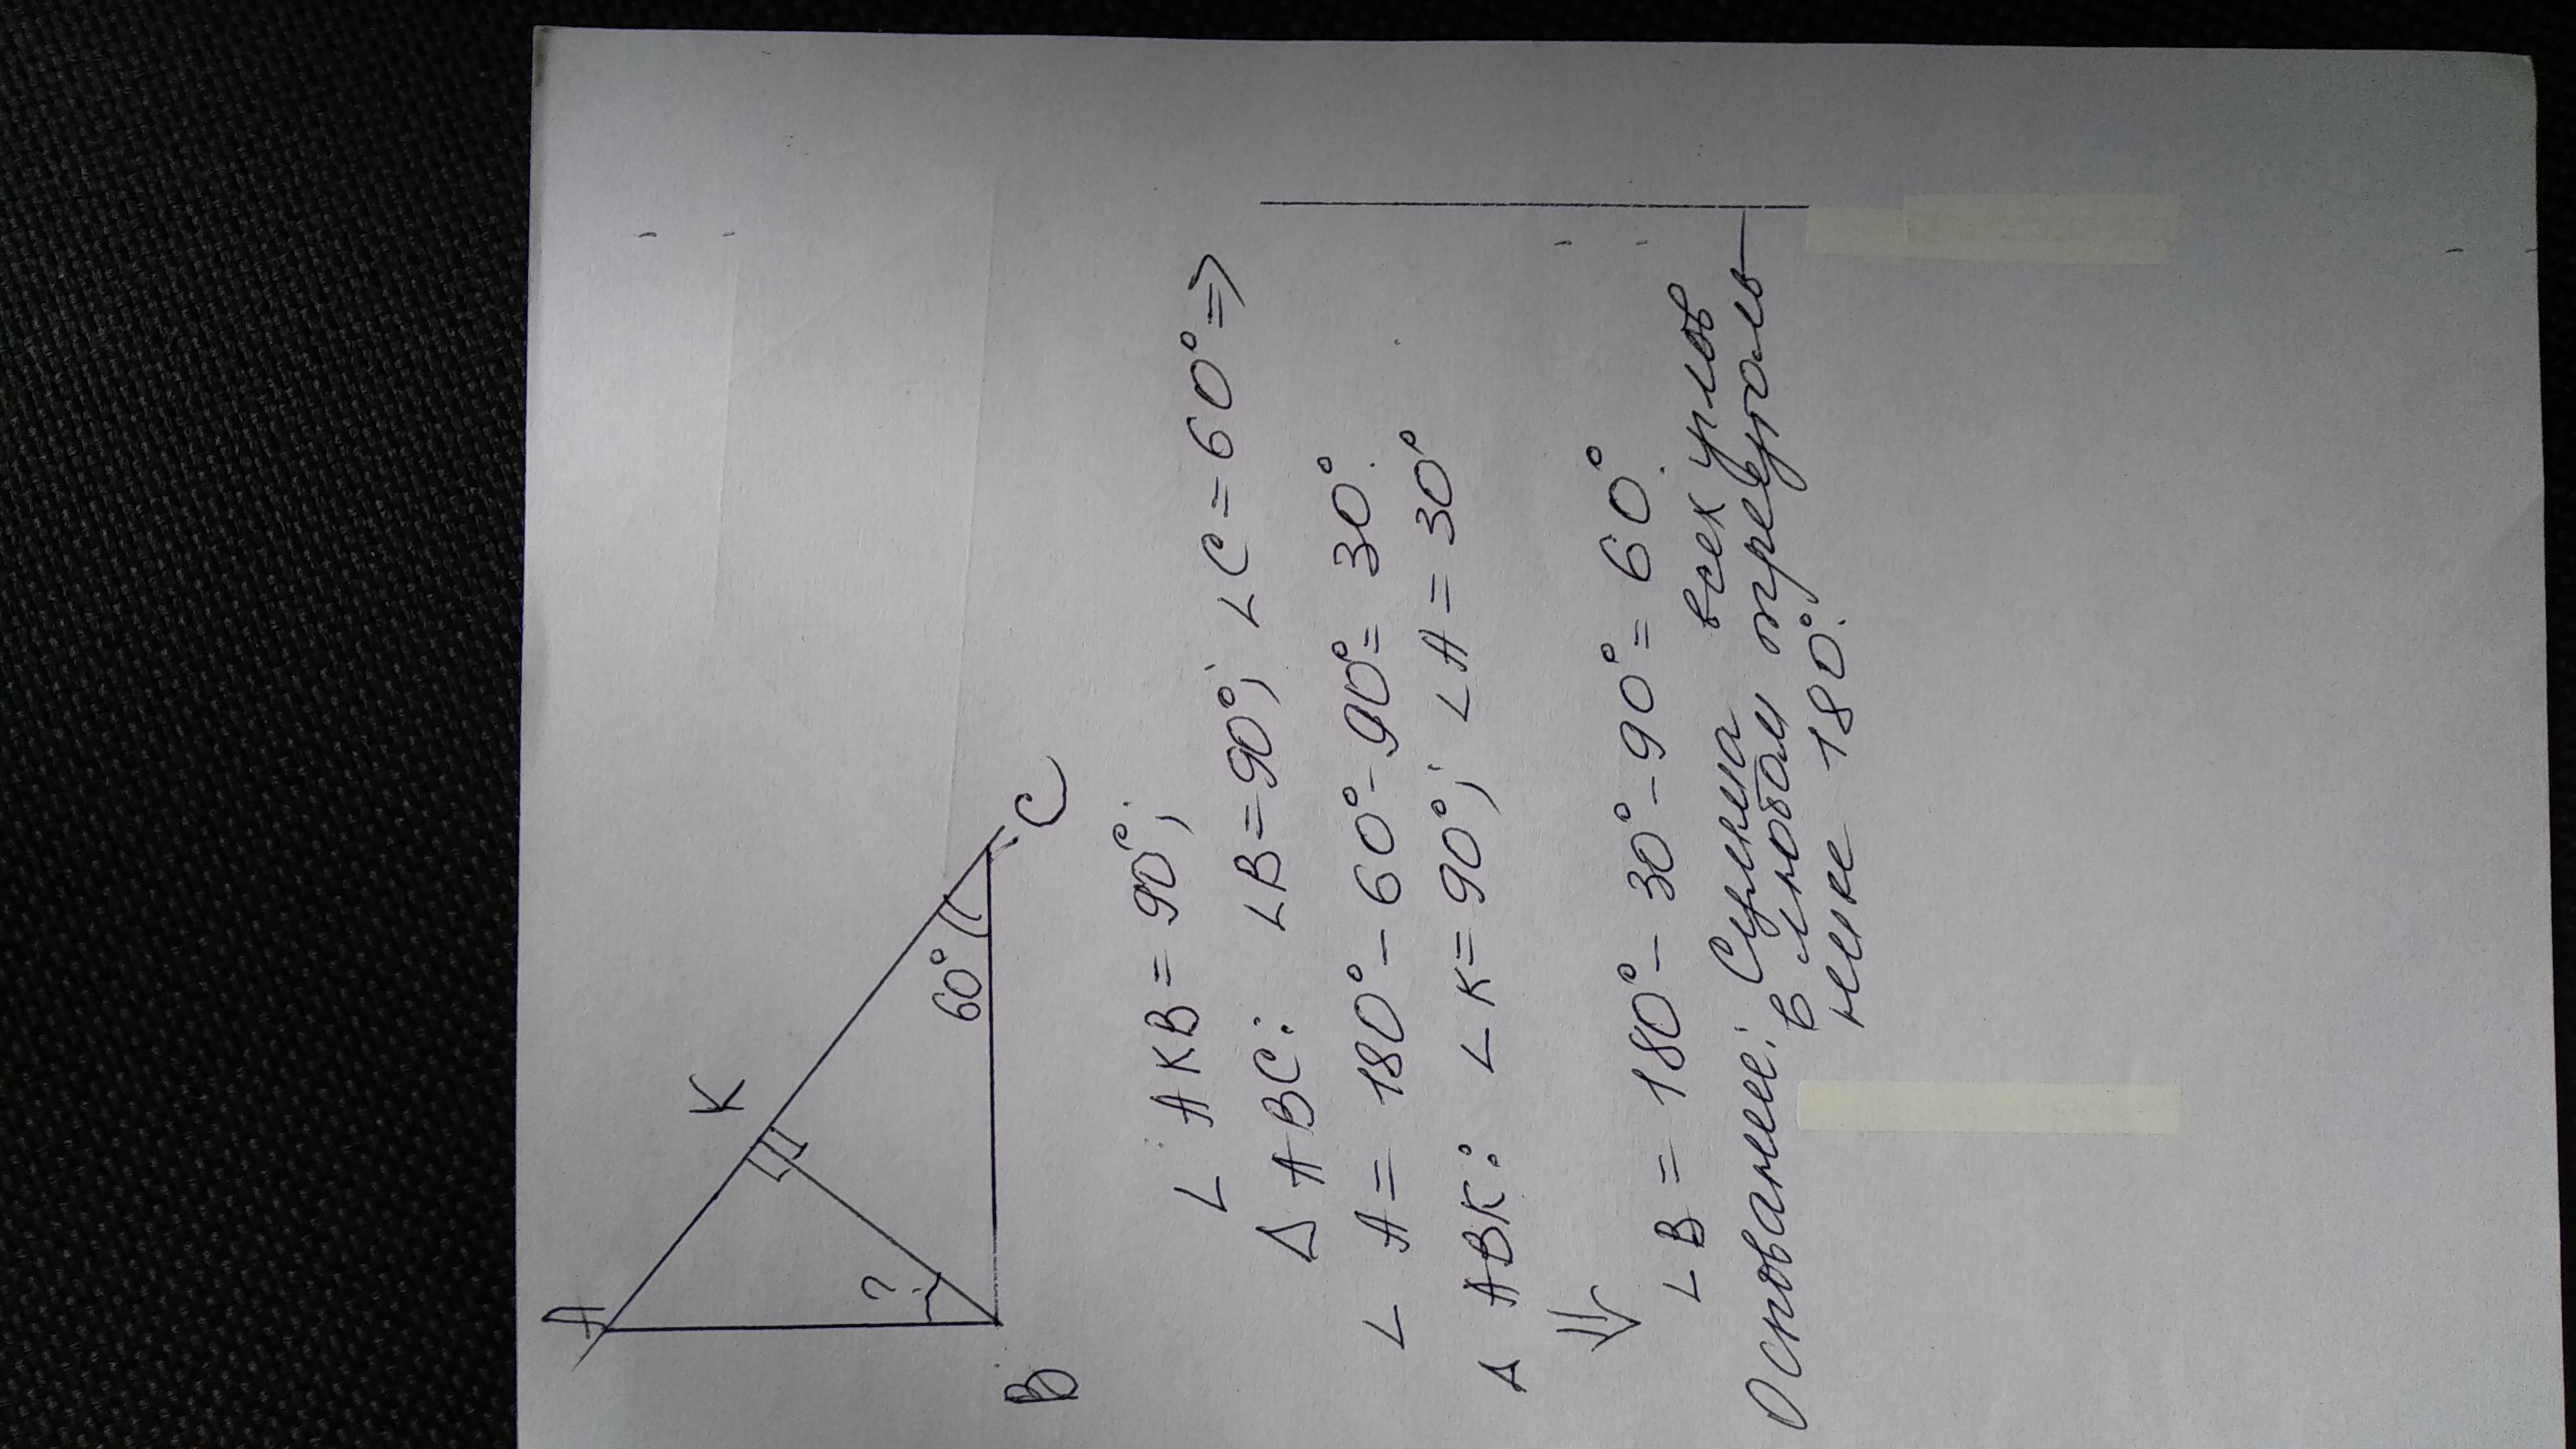 A
K
?
60°
B
C
∠ AKB = 90°;
Δ ABC: ∠B = 90°; ∠C = 60° ⇒
∠ A = 180° - 60° - 90° = 30°.
Δ ABK: ∠K = 90°; ∠A = 30°
⇓
∠B = 180° - 30° - 90° = 60°.
Основание: Сумма всех углов
в любом треуголь-
нике 180°.